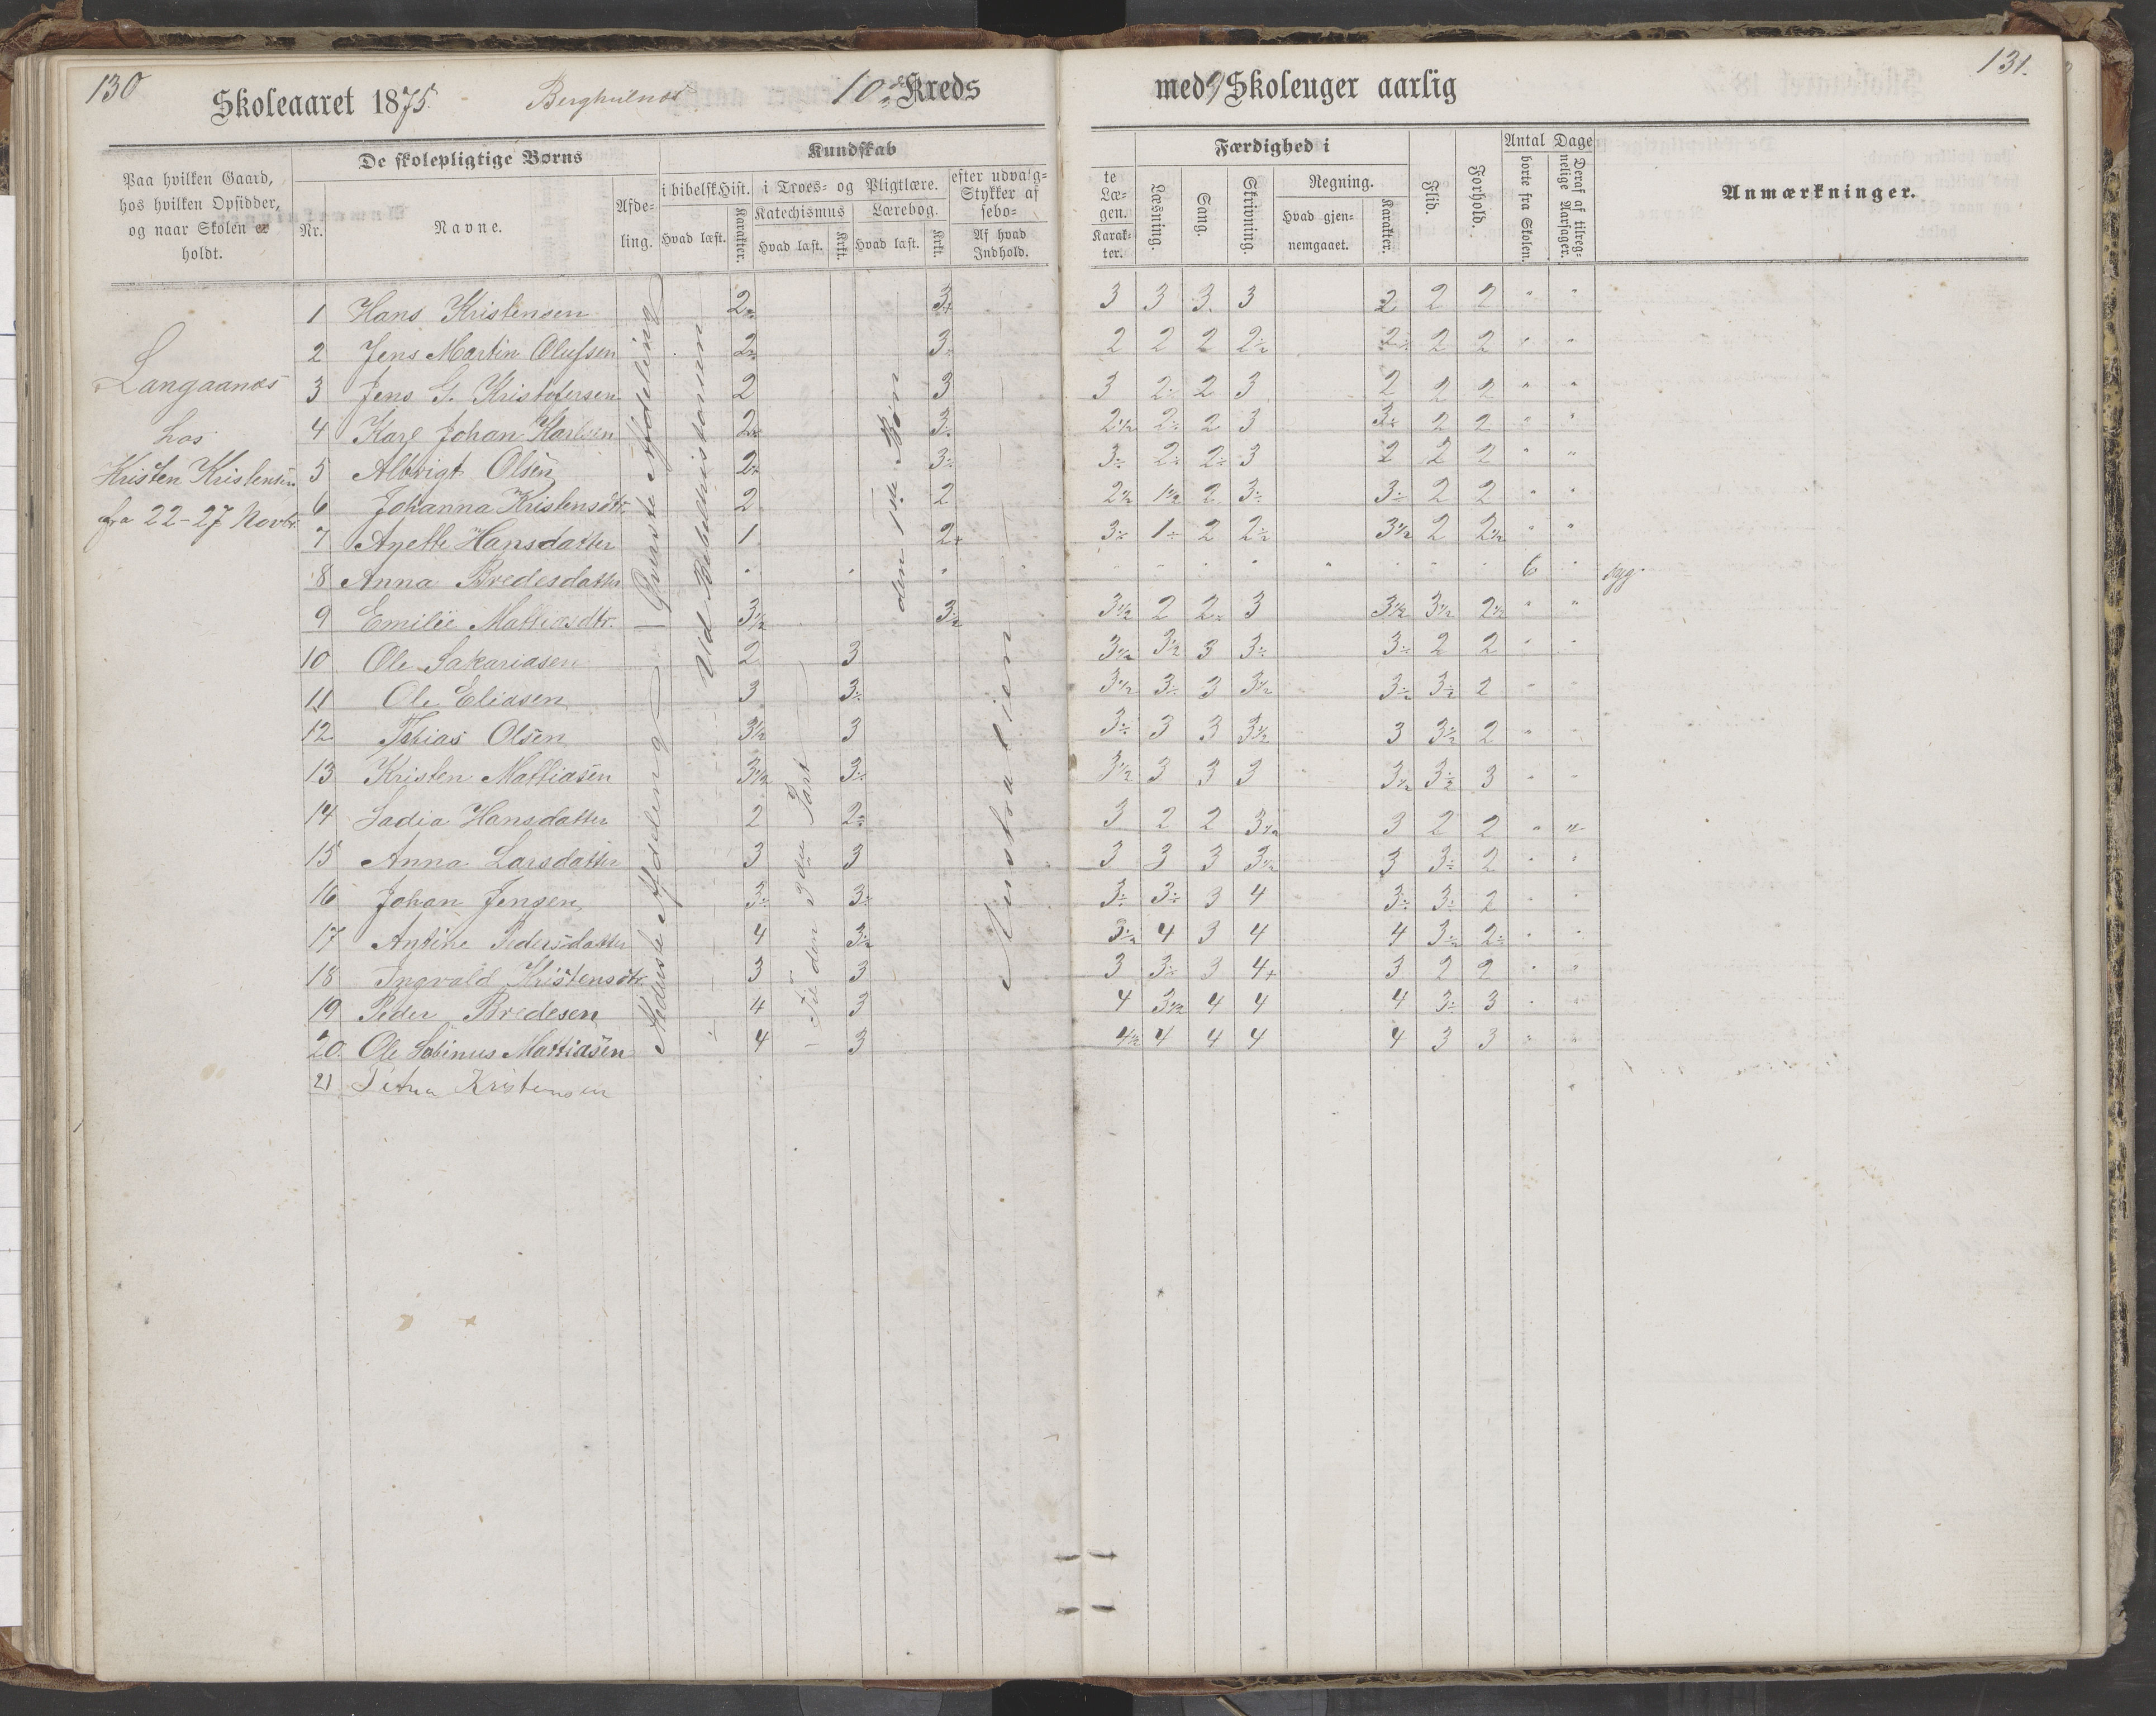 130
Skoleaaret 1875.
10de Kreds
med 9 Skoleuger aarlig
131.
Paa hvilken Gaard, hos hvilken Opsidder, og naar Skolen er holdt.
De skolepligtige Børns
Nr.
Navne.
Afdeling.
Kundskab
i bibelsk Hist.
Hvad læst.
Karakter.
i Troes- og Pligtlære.
Katechismus
Hvad læst.
Krkt.
Lærebog.
Hvad læst.
Krkt.
efter udvalg-
Stykker af
sebo-
Af hvad
Indhold.
te
Læ-
gen.
Karak-
ter.
Færdighed i
Læsning.
Sang.
Skrivning.
Regning.
Hvad gjen-
nemgaaet.
Karakter.
Flid.
Forhold.
Antal Dage
borte fra Skolen.
Deraf af tilreg-
nelige Aarsager.
Anmærkninger.
Langaanæs
hos
Kristen Kristensen
fra 22-27 Novbr.
Øverste Afdeling
Nederste Afdeling
den 1ste Bøn
Fra den 3die Part
1 Hans Kristensen 2÷ 3+ 3 3 3. 3 2 2 2 " "
2 Jens Martin Olufsen 2÷ 3÷ 2 2 2 2½ 2÷ 2 2 " "
3 Jens G. Kristofersen 2 3 3 2÷ 2 3 2 2 2 " "
4 Karl Johan Karlsen 2÷ 3÷ 2½ 2÷ 2 3 3÷ 2 2 " "
5 Albrigt Olsen 2÷ 3÷ 3÷ 2÷ 2÷ 3 2 2 2 " "
6 Johanna Kristensdtr. 2 2 2½ 1½ 2 3÷ 3÷ 2 2 " "
7 Anette Hansdatter 1 2÷ 3÷ 1÷ 2 2½ 3½ 2 2½ " "
8 Anna Bredesdatter " " " " " " " " " " 6 " syg
9 Emilie Mattiasdtr. 3½ 3½ 3½ 2 2÷ 3 3½ 3½ 2½ " "
10 Ole Sakariasen 2 3 3½ 3½ 3 3÷ 3÷ 2 2 " "
11 Ole Eliasen 3 3÷ 3½ 3÷ 3 3½ 3½ 3½ 2 " "
12 Tobias Olsen 3½ 3 3÷ 3 3 3½ 3 3½ 2 " "
13 Kristen Mattiasen 3½ 3÷ 3½ 3 3 3 3½ 3½ 3 " "
14 Sadia Hansdatter 2 2÷ 3 2 2 3½ 3 2 2 " "
15 Anna Larsdatter 3 3 3 3 3 3½ 3 3÷ 2 " "
16 Johan Jensen 3÷ 3÷ 3÷ 3÷ 3 4 3÷ 3÷ 2 " "
17 Antine Pedersdatter 4 3½ 3½ 4 3 4 4 3½ 2÷ " "
18 Ingvald Kristensdtr. 3 3 3 3÷ 3 4+ 3 2 2 " "
19 Peder Bredesen 4 3 4 3½ 4 4 4 3÷ 3 " "
20. Ole Sabinus Mattiasen 4 3 4½ 4 4 4 4 3 3 " "
21 Petra Kristensen